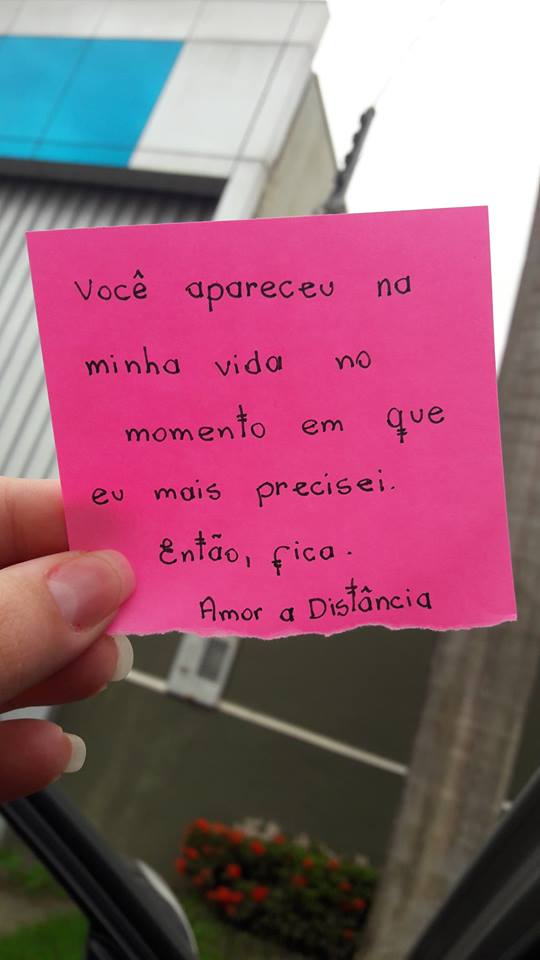 Você apareceu na
minha vida no
momento em que
eu mais precisei.
Então, fica.
Amor a Distância